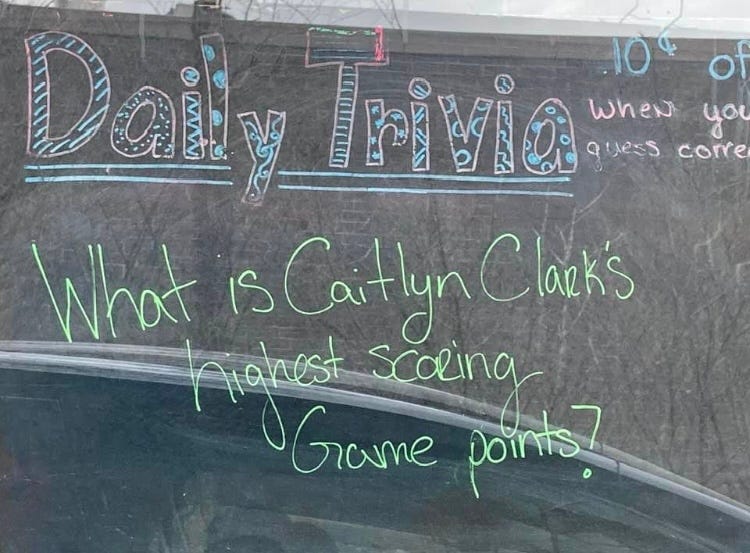 Daily Trivia
10¢ of
When you
guess corre
What is Caitlyn Clark's
highest scoring
Game points?